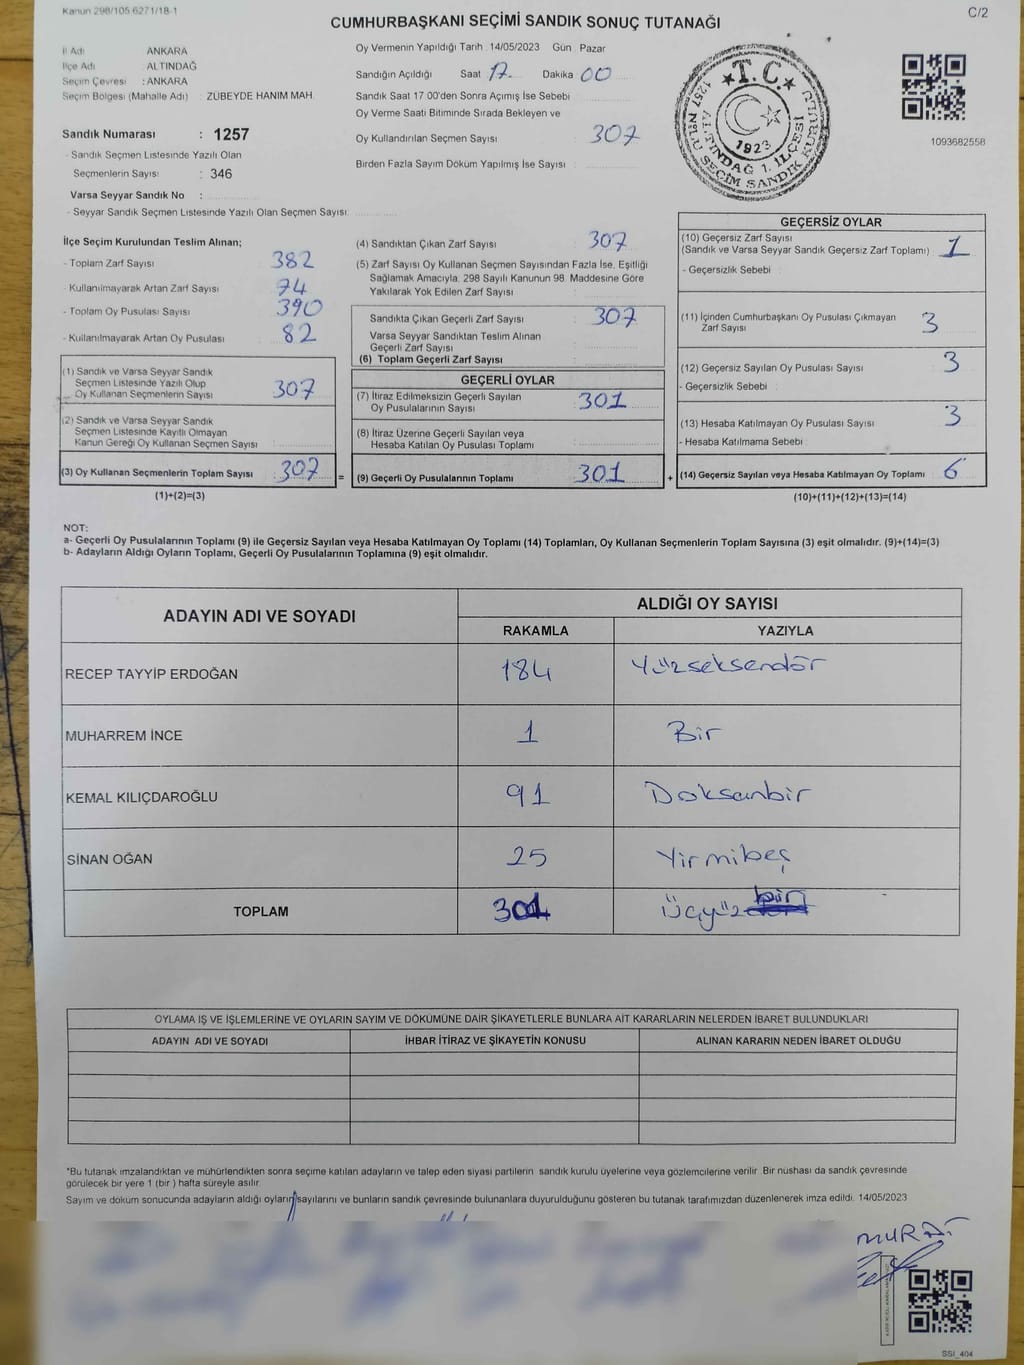 Kanun 298/105 6271/18-1
C/2
CUMHURBAŞKANI SEÇİMİ SANDIK SONUÇ TUTANAĞI
İl Adı ANKARA
İlçe Adı ALTINDAĞ
Seçim Çevresi : ANKARA
Seçim Bölgesi (Mahalle Adı) : ZÜBEYDE HANIM MAH.
Sandık Numarası : 1257
- Sandık Seçmen Listesinde Yazılı Olan
Seçmenlerin Sayısı : 346
Varsa Seyyar Sandık No :
- Seyyar Sandık Seçmen Listesinde Yazılı Olan Seçmen Sayısı:
Oy Vermenin Yapıldığı Tarih : 14/05/2023 Gün : Pazar
Sandığın Açıldığı Saat 17 Dakika 00
Sandık Saat 17:00'den Sonra Açımış İse Sebebi
Oy Verme Saati Bitiminde Sırada Bekleyen ve
Oy Kullandırılan Seçmen Sayısı : 307
Birden Fazla Sayım Döküm Yapılmış İse Sayısı :
T.C.
1257 NOLU SEÇİM SANDIK KURULU
ALTINDAĞ 1. İLÇESİ
1923
1093682558
İlçe Seçim Kurulundan Teslim Alınan;
- Toplam Zarf Sayısı 382
- Kullanılmayarak Artan Zarf Sayısı 74
- Toplam Oy Pusulası Sayısı 390
- Kullanılmayarak Artan Oy Pusulası 82
(1) Sandık ve Varsa Seyyar Sandık
Seçmen Listesinde Yazılı Olup
Oy Kullanan Seçmenlerin Sayısı 307
(2) Sandık ve Varsa Seyyar Sandık
Seçmen Listesinde Kayıtlı Olmayan
Kanun Gereği Oy Kullanan Seçmen Sayısı
(3) Oy Kullanan Seçmenlerin Toplam Sayısı 307
(1)+(2)=(3)
=
(4) Sandıktan Çıkan Zarf Sayısı 307
(5) Zarf Sayısı Oy Kullanan Seçmen Sayısından Fazla İse, Eşitliği
Sağlamak Amacıyla; 298 Sayılı Kanunun 98. Maddesine Göre
Yakılarak Yok Edilen Zarf Sayısı
Sandıkta Çıkan Geçerli Zarf Sayısı 307
Varsa Seyyar Sandıktan Teslim Alınan
Geçerli Zarf Sayısı
(6) Toplam Geçerli Zarf Sayısı
GEÇERLİ OYLAR
(7) İtiraz Edilmeksizin Geçerli Sayılan
Oy Pusulalarının Sayısı 301
(8) İtiraz Üzerine Geçerli Sayılan veya
Hesaba Katılan Oy Pusulası Toplamı
(9) Geçerli Oy Pusulalarının Toplamı 301
+
GEÇERSİZ OYLAR
(10) Geçersiz Zarf Sayısı
(Sandık ve Varsa Seyyar Sandık Geçersiz Zarf Toplamı) : 1
- Geçersizlik Sebebi :
(11) İçinden Cumhurbaşkanı Oy Pusulası Çıkmayan
Zarf Sayısı 3
(12) Geçersiz Sayılan Oy Pusulası Sayısı 3
- Geçersizlik Sebebi :
(13) Hesaba Katılmayan Oy Pusulası Sayısı 3
- Hesaba Katılmama Sebebi :
(14) Geçersiz Sayılan veya Hesaba Katılmayan Oy Toplamı 6
(10)+(11)+(12)+(13)=(14)
NOT:
a- Geçerli Oy Pusulalarının Toplamı (9) ile Geçersiz Sayılan veya Hesaba Katılmayan Oy Toplamı (14) Toplamları, Oy Kullanan Seçmenlerin Toplam Sayısına (3) eşit olmalıdır. (9)+(14)=(3)
b- Adayların Aldığı Oyların Toplamı, Geçerli Oy Pusulalarının Toplamına (9) eşit olmalıdır.
ADAYIN ADI VE SOYADI ALDIĞI OY SAYISI
RAKAMLA YAZIYLA
RECEP TAYYİP ERDOĞAN 184 Yüzseksendör
MUHARREM İNCE 1 Bir
KEMAL KILIÇDAROĞLU 91 Doksanbir
SİNAN OĞAN 25 Yirmibeş
TOPLAM 301 Üçyüz bir
OYLAMA İŞ VE İŞLEMLERİNE VE OYLARIN SAYIM VE DÖKÜMÜNE DAİR ŞİKAYETLERLE BUNLARA AİT KARARLARIN NELERDEN İBARET BULUNDUKLARI
ADAYIN ADI VE SOYADI İHBAR İTİRAZ VE ŞİKAYETİN KONUSU ALINAN KARARIN NEDEN İBARET OLDUĞU
*Bu tutanak imzalandıktan ve mühürlendikten sonra seçime katılan adayların ve talep eden siyasi partilerin sandık kurulu üyelerine veya gözlemcilerine verilir. Bir nüshası da sandık çevresinde
görülecek bir yere 1 (bir ) hafta süreyle asılır.
Sayım ve döküm sonucunda adayların aldığı oyların sayılarını ve bunların sandık çevresinde bulunanlara duyurulduğunu gösteren bu tutanak tarafımızdan düzenlenerek imza edildi. 14/05/2023
MURAT
SSI_404